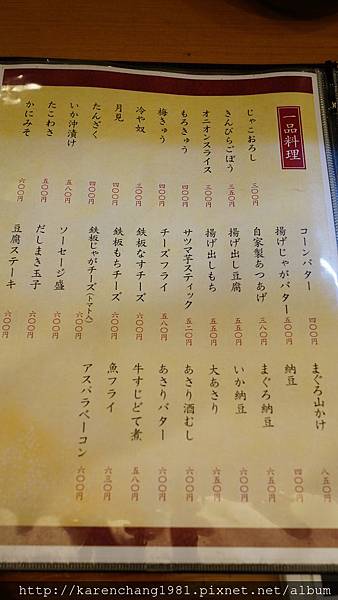 一品料理
じゃこおろし 三〇〇円
きんぴらごぼう 三五〇円
オニオンスライス 三〇〇円
もろきゅう 四〇〇円
梅きゅう 四〇〇円
冷や奴 三〇〇円
月見 四〇〇円
たんざく 四〇〇円
いか沖漬け 五八〇円
たこわさ 五〇〇円
かにみそ 六〇〇円
コーンバター 四〇〇円
揚げじゃがバター 五〇〇円
自家製あつあげ 三八〇円
揚げ出し豆腐 五五〇円
揚げ出しもち 五五〇円
サツマ芋スティック 五二〇円
チーズフライ 五八〇円
鉄板なすチーズ 六〇〇円
鉄板もちチーズ 六〇〇円
鉄板じゃがチーズ(トマト入) 六〇〇円
ソーセージ盛 六〇〇円
だしまき玉子 六〇〇円
豆腐ステーキ 六〇〇円
まぐろ山かけ 八五〇円
納豆 四〇〇円
まぐろ納豆 六五〇円
いか納豆 六〇〇円
大あさり 六五〇円
あさり酒むし 六五〇円
あさりバター 六〇〇円
牛すじどて煮 五八〇円
魚フライ 六三〇円
アスパラベーコン 六〇〇円
http://karenchang1981.pixnet.net/album